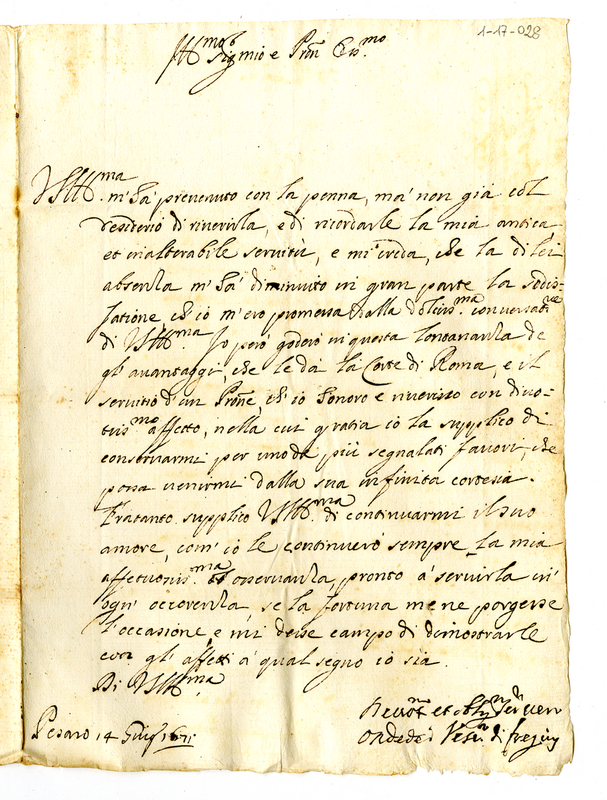 1-17-028
Ill.mo Sig.r mio e P'ron Col.mo
V S Ill.ma m'hà prevenuto con la penna, mà non già col
desiderio di riverirla, e di ricordarle la mia antica
et inalterabile servitù, e mi creda, che la di lei
absenza m'hà diminuito in gran parte la sodis-
fatione ch'io m'ero promessa dalla dolciss.ma conversat.ne
di V S Ill.ma. Io però goderò in questa lontananza de
gl'avantaggi che le dà la Corte di Roma, e il
servitio d'un P'rone ch'io honoro e riverisco con divo-
tiss.mo affetto, nella cui gratia io la supplico di
conservarmi per uno de più segnalati favori, che
possa venirmi dalla sua infinita cortesia.
Fratanto supplico V S Ill.ma di continuarmi il suo
amore, com'io le continuerò sempre la mia
affetuosiss.ma osservanza, pronto à servirla in
ogn'occorrenza, se la fortuna me ne porgesse
l'occasione, e mi desse campo di dimostrarle
con gl'effetti à qual segno io sia.
Di V S Ill.ma
Pesaro 14 Giug.
Devot.mo et Ser.r vero
Ondedei Vesc. di frejus